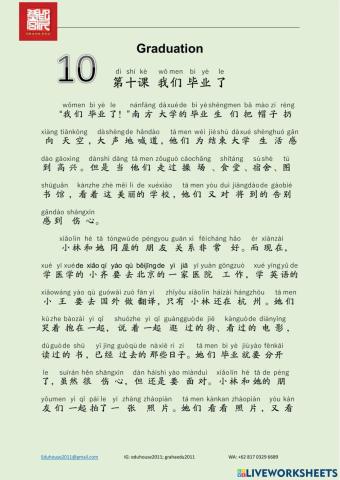 Graduation
10
dì shí kè wǒ men bì yè le
第十课 我们 毕业 了
wǒmen bì yè le nánfāng dàxué de bì yèshēngmen bǎ mào zi rēng
“我们 毕业 了！”南 方 大学的 毕业 生 们 把 帽子 扔
xiàng tiānkōng dàshēngde hǎndào tāmen wèi jiéshù dàxué shēnghuó gǎn
向 天 空，大 声 地 喊道，他们 为 结束 大学 生 活 感
dào gāoxìng dànshì dāng tāmen zǒuguò cāochǎng shítáng sùshè tú
到 高兴。但是 当 他们 走过 操 场 、食堂、宿舍、图
shūguǎn kànzhe zhè měi lì de xuéxiào tāmen yòu duì jiāngdàode gàobié
书 馆，看着 这 美丽的 学校，他们 又 对 将到 的 告别
gǎndào shāngxīn
感到 伤心。
xiǎolín hé tā tóngwūde péngyou guān xì fēicháng hǎo ér xiànzài
小林和她 同屋的 朋友 关系 非常 好。而现在，
xué yī xuéde xiǎo qí yào qù běijīngde yì jiā yī yuàn gōngzuò xué yīngyǔ de
学医学的 小 齐要 去北京的 一家医院 工作，学 英语的
xiǎowáng yào qù guówài zuò fān yì zhǐyǒu xiǎolín háizài hángzhōu tāmen
小 王 要 去国外 做 翻译，只有 小林 还在 杭 州。她们
kūzhe bàozài yì qǐ shuōzhe yì qǐ guàngguòde jiē kànguòde diànyǐng
哭着 抱在一起，说着一起 逛 过的街、看过的 电影，
dúguòde shū yǐ jīng guòqù de nàxiē rì zi tāmen bì yè jiùyào fēnkāi
读过的书，已经 过去的 那些日子。她们 毕业就要 分开
le suīrán hěn shāngxīn dàn háishì yào miànduì xiǎolín hé tā de péng
了，虽然 很 伤心，但还是 要 面对。小林和她的 朋
yǒumen yì qǐ pāi le yì zhāng zhàopiàn tāmen kànkan zhàopiàn yòu kàn
友们 一起拍了一 张 照片。她们 看看 照片，又看
Eduhouse2011@gmail.com IG: eduhouse2011; grahaedu2011 WA: +62 817 0329 6689
LIVEWORKSHEETS